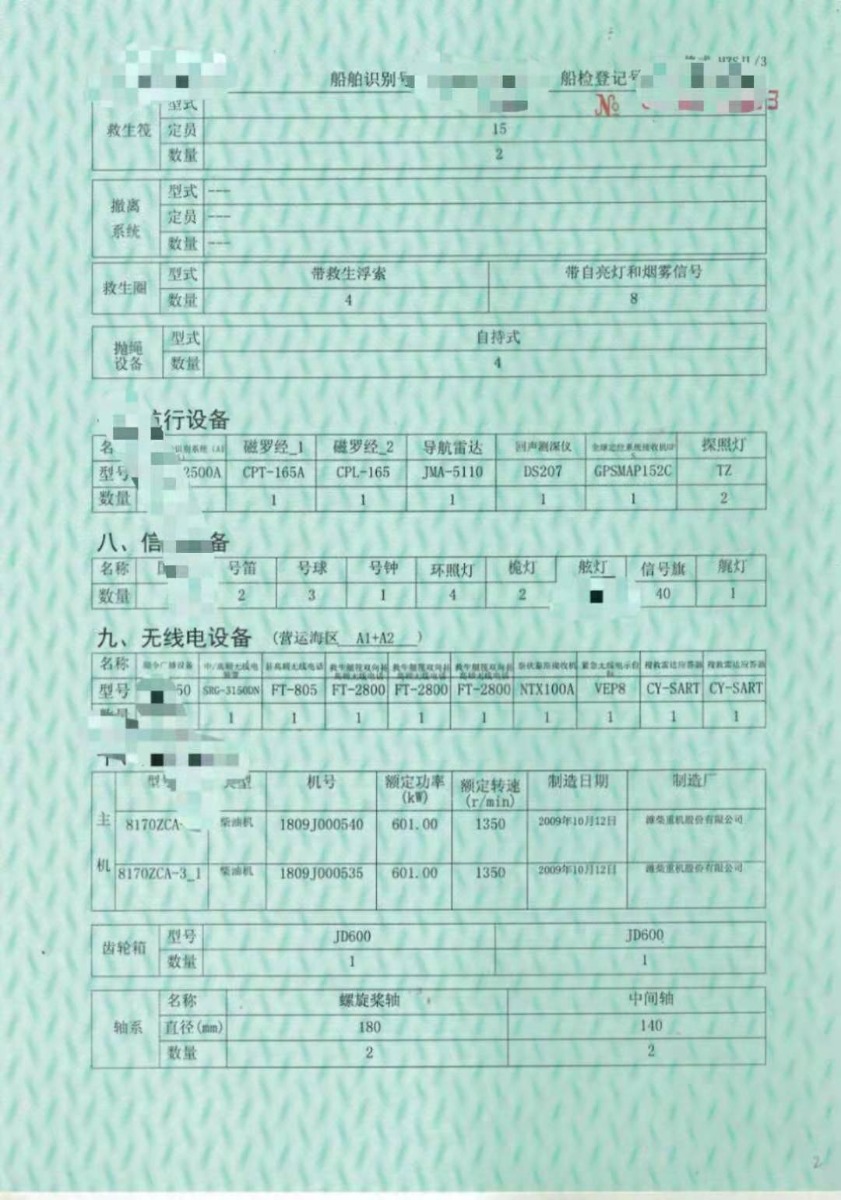 船舶识别号 船检登记号
/3
№ 3
救生筏 型式
定员 15
数量 2
撤离系统 型式 ---
定员 ---
数量 ---
救生圈 型式 带救生浮索 带自亮灯和烟雾信号
数量 4 8
抛绳设备 型式 自持式
数量 4
航行设备
名 磁罗经_1 磁罗经_2 导航雷达 回声测深仪 探照灯
型号 2500A CPT-165A CPL-165 JMA-5110 DS207 GPSMAP152C TZ
数量 1 1 1 1 1 2
八、信 备
名称 号笛 号球 号钟 环照灯 桅灯 舷灯 信号旗 艉灯
数量 2 3 1 4 2 40 1
九、无线电设备 (营运海区 A1+A2 )
名称 中/高频无线电装置 甚高频无线电话 救生艇筏双向甚高频无线电话 救生艇筏双向甚高频无线电话 救生艇筏双向甚高频无线电话 搜救雷达应答器 搜救雷达应答器
型号 50 SRG-3150DN FT-805 FT-2800 FT-2800 FT-2800 NTX100A VEP8 CY-SART CY-SART
数量 1 1 1 1 1 1 1 1 1
主机 型号 类型 机号 额定功率(kW) 额定转速(r/min) 制造日期 制造厂
8170ZCA- 柴油机 1809J000540 601.00 1350 2009年10月12日 潍柴重机股份有限公司
8170ZCA-3_1 柴油机 1809J000535 601.00 1350 2009年10月12日 潍柴重机股份有限公司
齿轮箱 型号 JD600 JD600
数量 1 1
轴系 名称 螺旋桨轴 中间轴
直径(mm) 180 140
数量 2 2
2